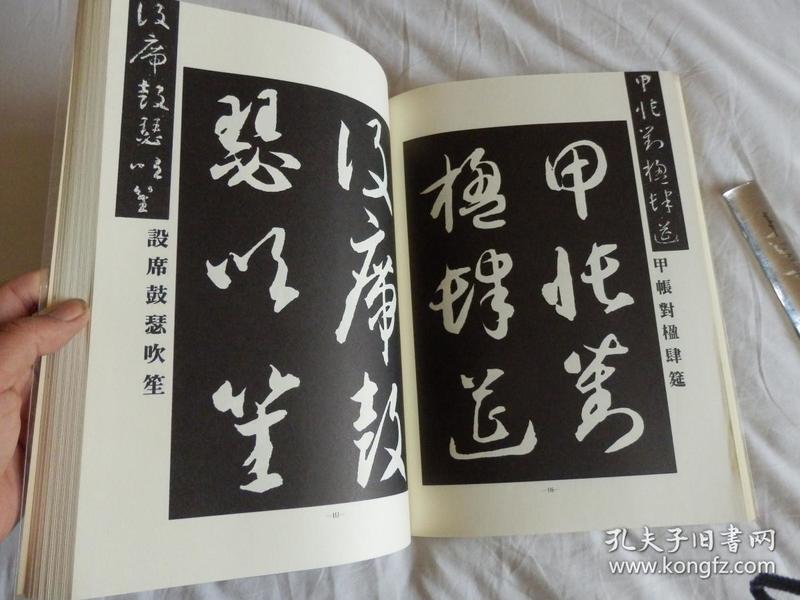 甲帳對楹肆筵
甲帳對
楹肆筵
甲帳對楹肆筵
設席鼓
瑟吹笙
設席鼓瑟吹笙
設席鼓瑟吹笙
孔夫子旧书网
www.kongfz.com